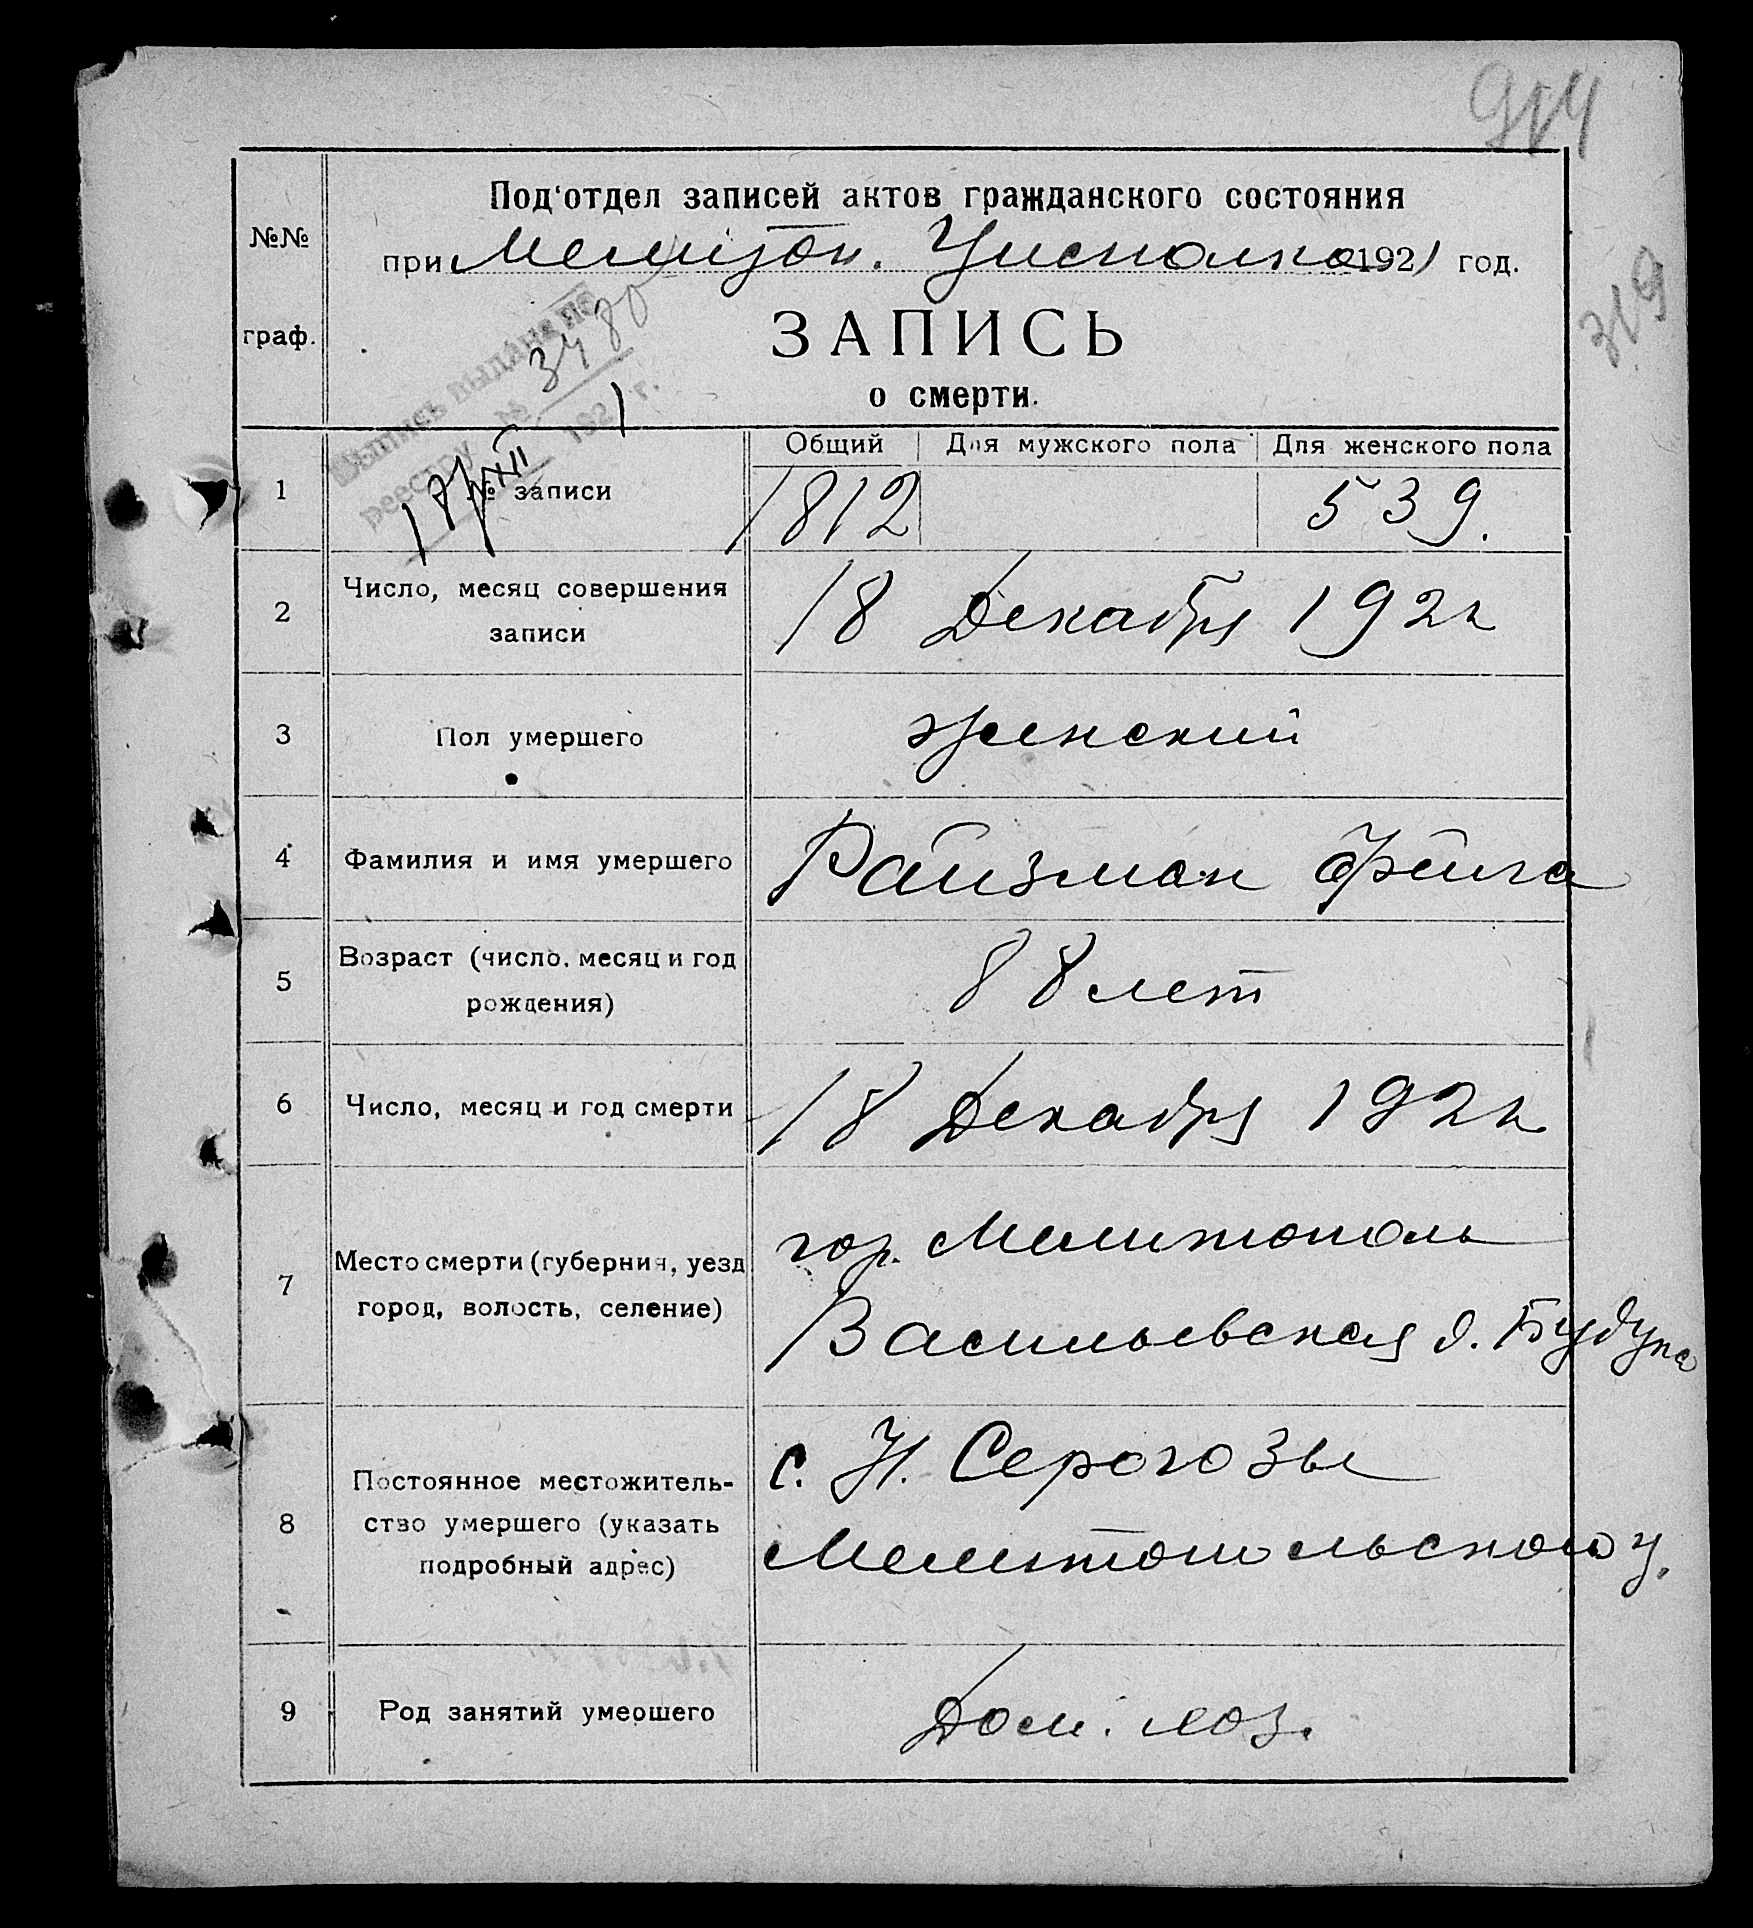 914
Под'отдел записей актов гражданского состояния
№№
при Мелитоп. Уисполко 1921 год.
319
граф.
ЗАПИСЬ
о смерти.
Выпись выдана по
реестру № 3480
18/XII 1921 г.
Общий Для мужского пола Для женского пола
1 № записи 1812 539.
2 Число, месяц совершения
записи
18 Декабря 192
3 Пол умершего женский
4 Фамилия и имя умершего Райзман Фейга
5 Возраст (число, месяц и год
рождения)
88 лет
6 Число, месяц и год смерти 18 Декабря 192
7 Место смерти (губерния, уезд
город, волость, селение)
гор. Мелитополь
Васильевская д.
8 Постоянное местожитель-
ство умершего (указать
подробный адрес)
с. Н. Серогозы
у.
9 Род занятий умершего Дом. хоз.